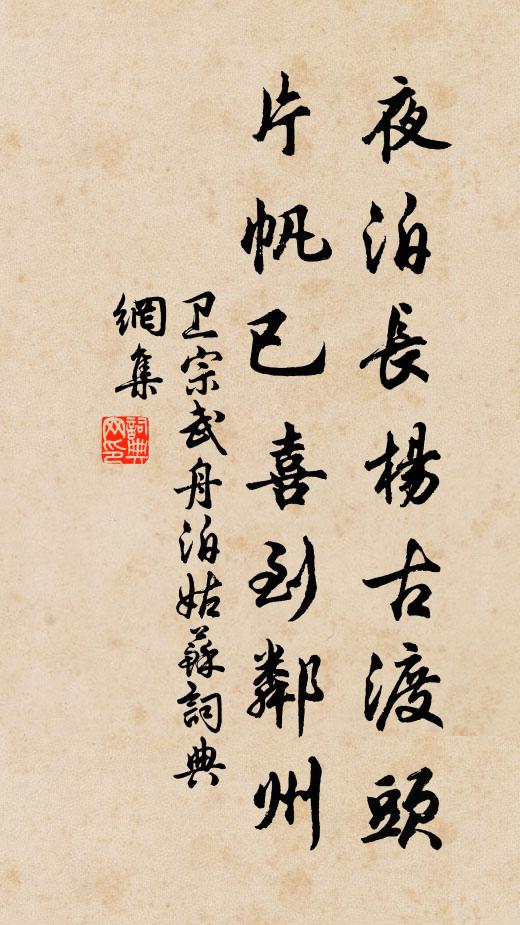 夜泊長楊古渡頭
片帆已喜到鄰州
卫宗武舟泊姑蘇詞典
網集
詞典
网印